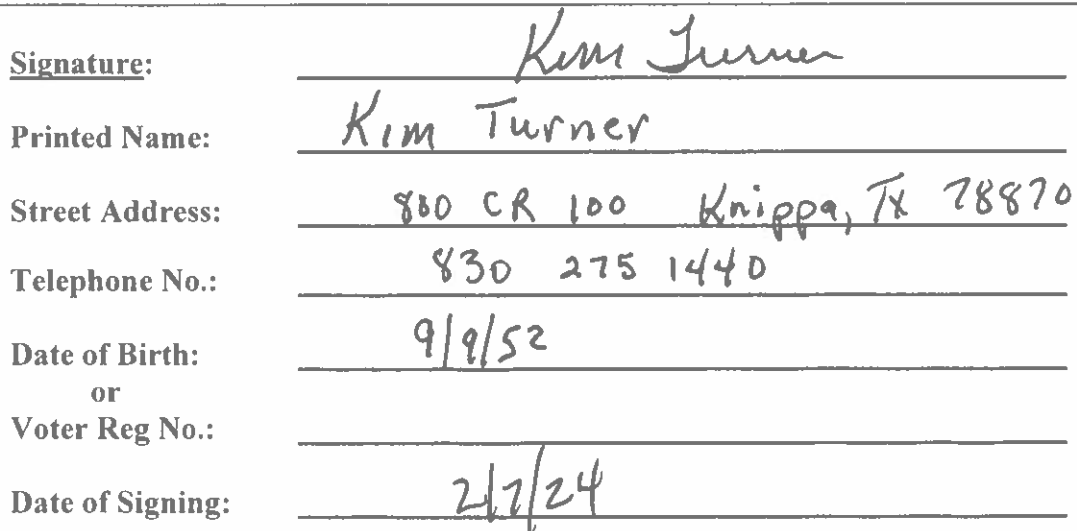 Signature: Kim Turner
Printed Name: Kim Turner
Street Address: 800 CR 100 Knippa, TX 78870
Telephone No.: 830 275 1440
Date of Birth: 9/9/52
or
Voter Reg No.:
Date of Signing: 2/7/24